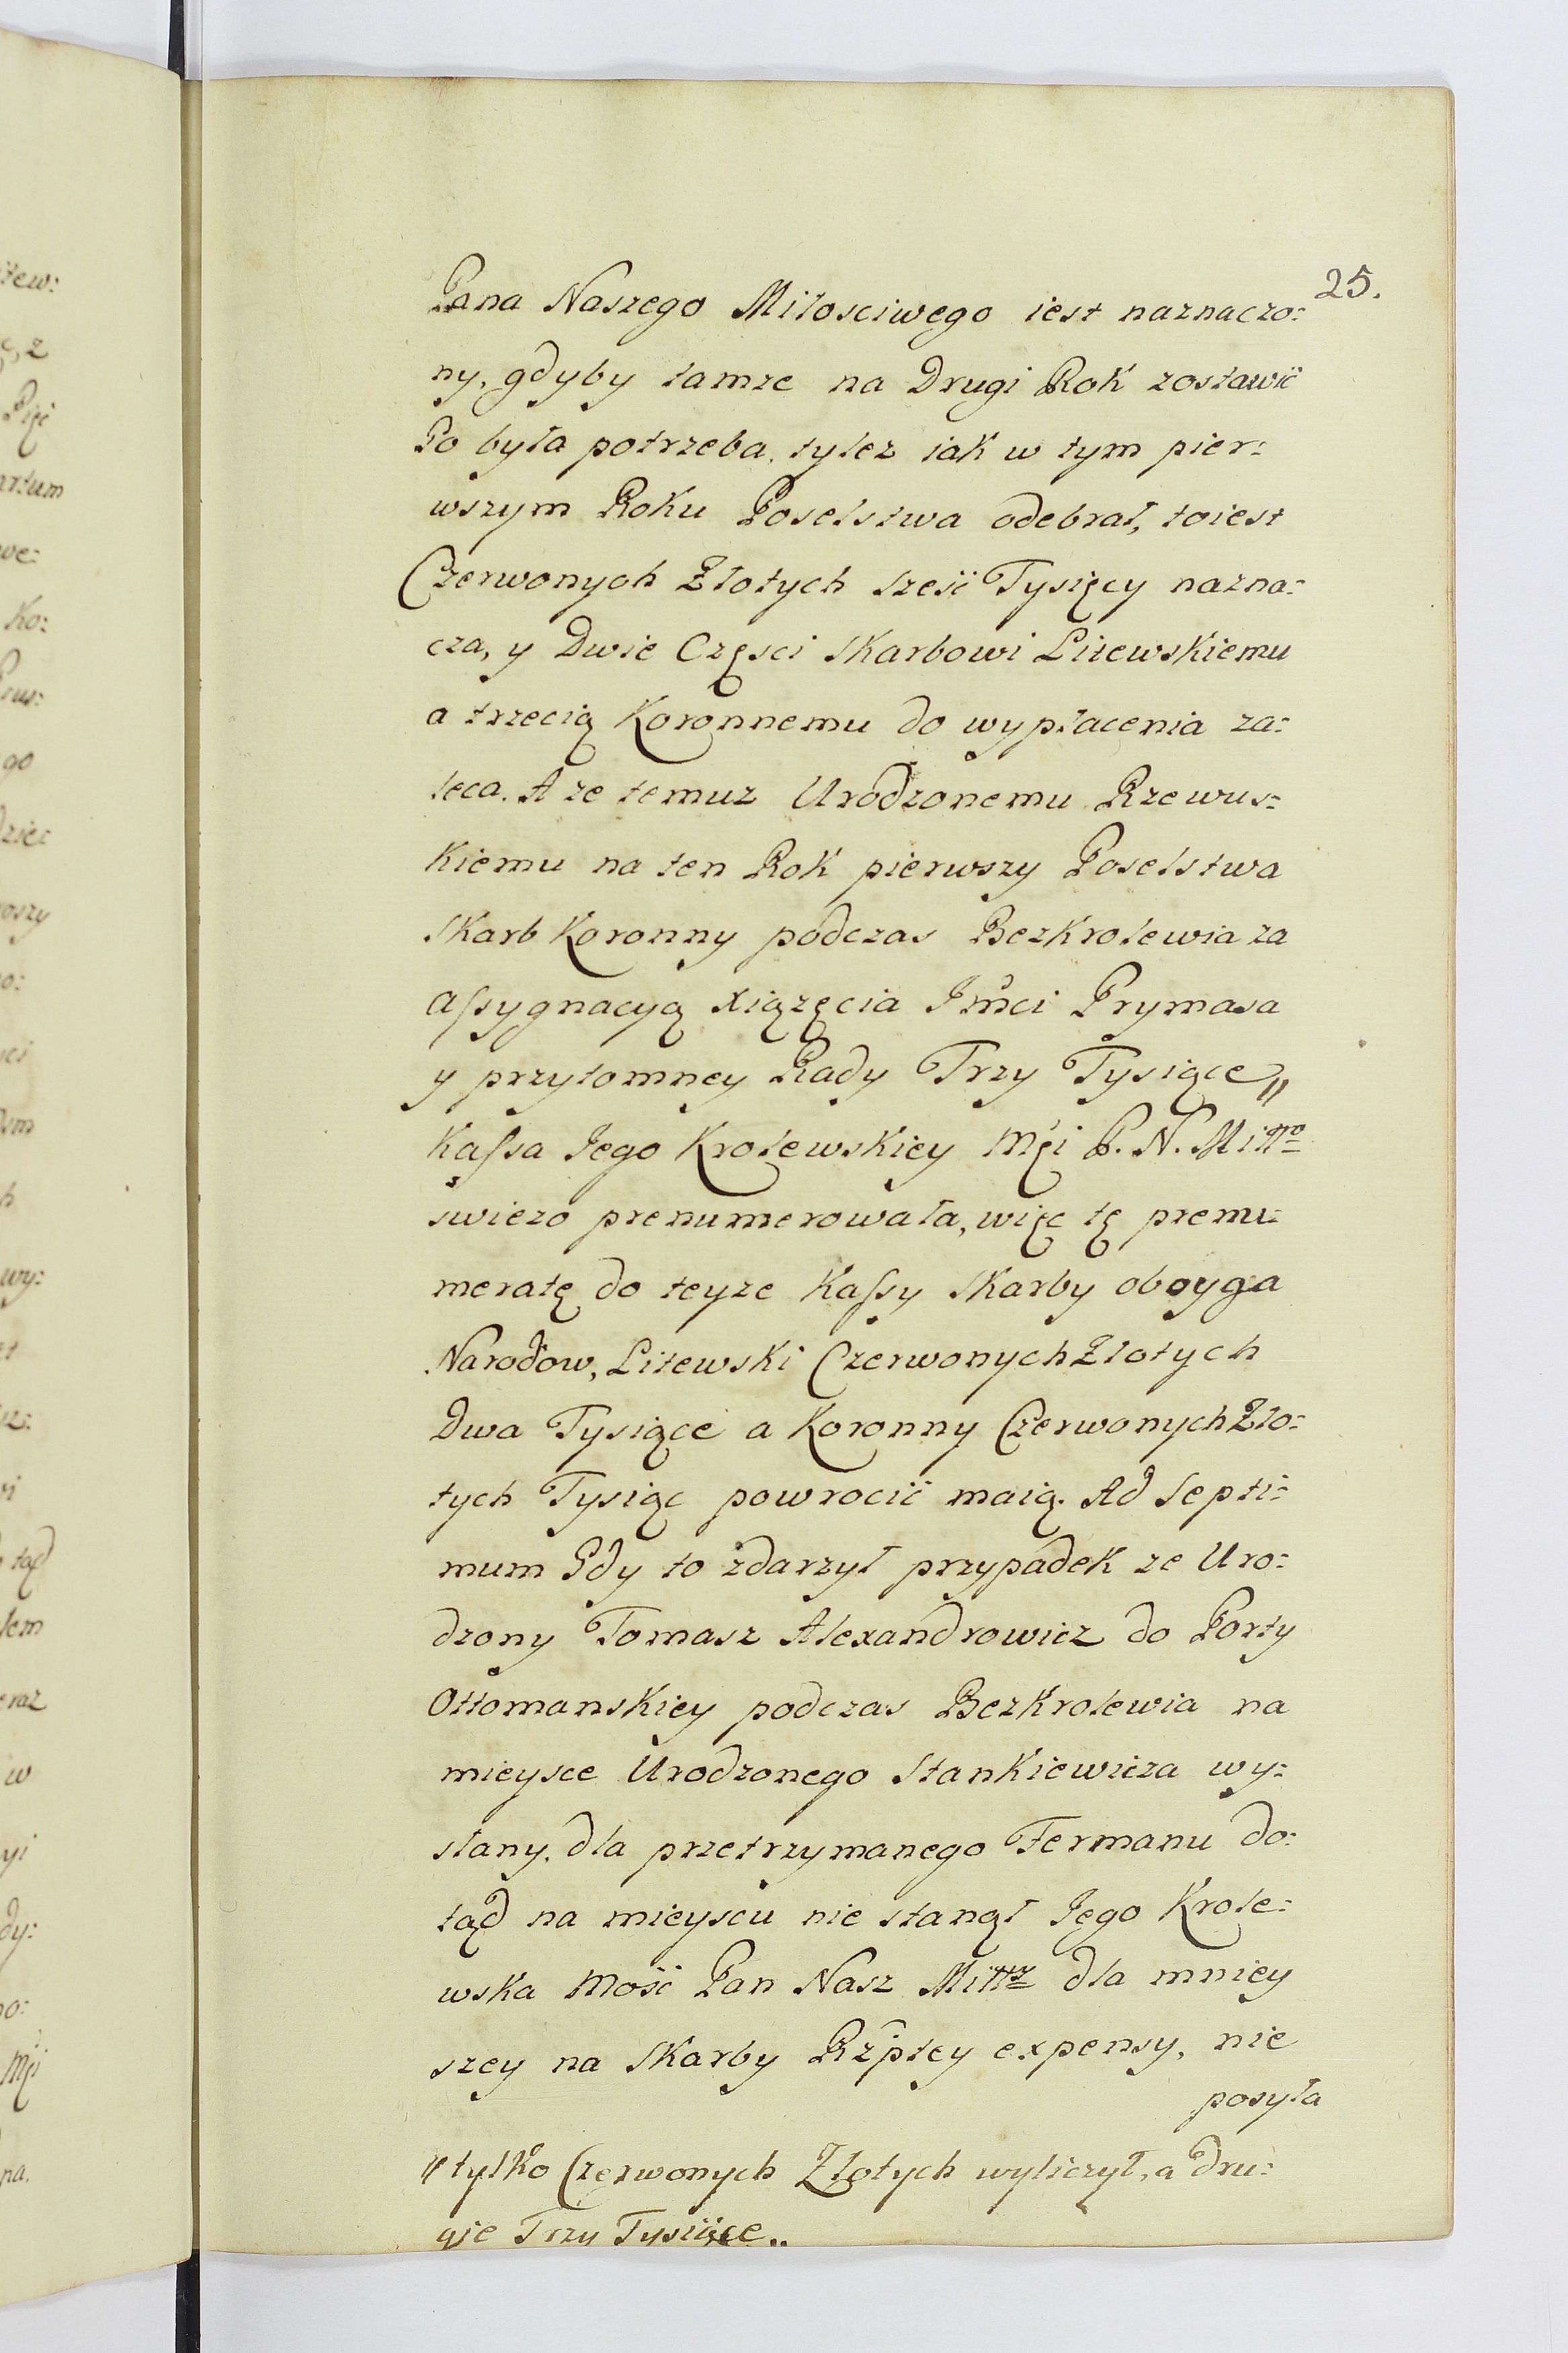 25.
Pana Naszego Miłosciwego iest naznaczo:
ny, gdyby tamze na Drugi Rok zostawić
Go była potrzeba, tylez iak w tym pier:
wszym Roku Poselstwa odebrał, toiest
Czerwonych Złotych sześć Tysięcy nazna:
cza, y Dwie Częsci Skarbowi Litewskiemu
a trzecią Koronnemu do wypłacenia za:
leca. A ze temuz Urodzonemu Rzewus:
kiemu na ten Rok pierwszy Poselstwa
Skarb Koronny podczas Bezkrolewia za
Assygnacyą Xiązęcia Jmci Prymasa
y przytomney Rady Trzy Tysiące "
Kassa Jego Krolewskiey Mći P. N. Miłło
swiezo prenumerowała, więc tę prenu:
meratę do teyze Kassy Skarby oboyga
Narodow, Litewski Czerwonych Złotych
Dwa Tysiące a Koronny Czerwonych Zło:
tych Tysiąc powrocić maią. Ad Septi:
mum Gdy to zdarzył przypadek ze Uro:
dzony Tomasz Alexandrowicz do Porty
Ottomanskiey podczas Bezkrolewia na
mieysce Urodzonego Stankiewicza wy:
słany, dla przetrzymanego Fermanu do:
tąd na mieyscu nie stanął Jego Krole:
wska Mość Pan Nasz Miłłz dla mniey
szey na Skarby Rzptey expensy, nie
posyła
" tylko Czerwonych Złotych wyliczył, a dru:
gie Trzy Tysiące..